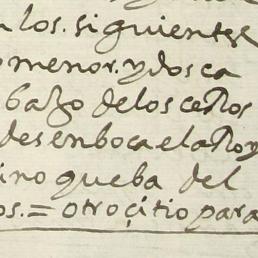 los. siguientes
menor. y dos ca
bazo de los cerros
desenboca el arroy
ino que ba del
os. = otro çitio para